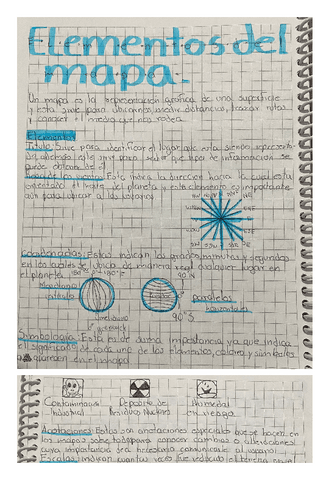 Elementos del
mapa.
Un mapa es la representación gráfica de una superficie
y esta sirve para ubicarnos, medir distancias, trazar rutas
y conocer el medio que nos rodea.
Elementos
Título: Sirve para identificar el lugar que esta siendo represent-
ado, además este sirve para saber que tipo de información se
puede obtener de él
Este indica la dirección hacia la cual esta
orientado el norte del planeta y este elemento es importante
para ubicar a los
Coordenadas: Estas indican los grados, minutos y segundos
en los cuales se ubica de manera real cualquier lugar en
el planeta
180°E 0° 180°O
90°N
Meridiano
paralelos
horizontales
meridiano
greenwich
90°S
Simbología: Esta es de suma importancia ya que indica
el significado de cada uno de los elementos, colores y símbolos
que aparecen en el mapa
Contaminación Deposito de Humedal
Industrial Residuos Nucleares en riesgo
Anotaciones: Estas son anotaciones especiales que se hacen en
los mapas sobre todo para conocer cambios o alteraciones
cuya importancia sea necesaria comunicarle al usuario
Escalas: indican cuantas veces fue reducido el terreno en el